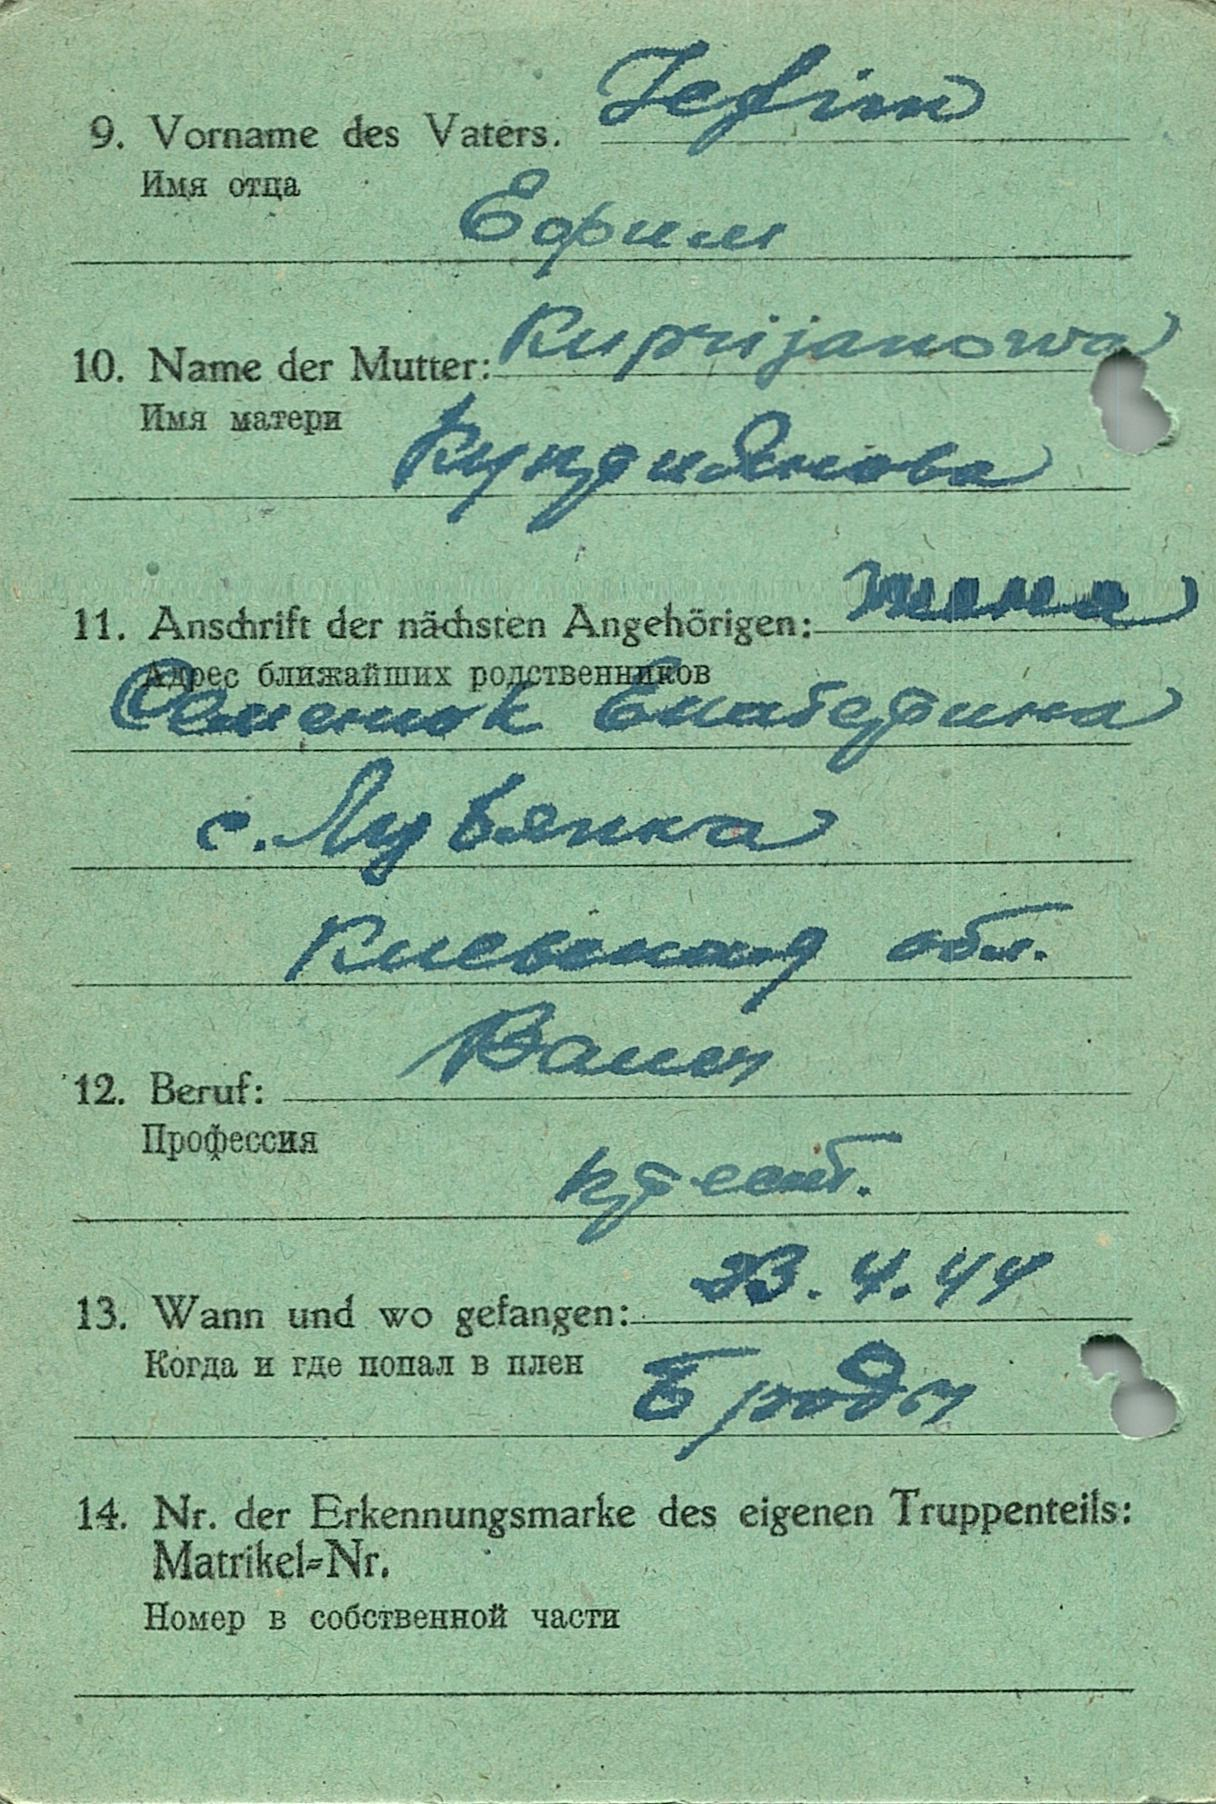 9. Vorname des Vaters. Jefim
Имя отца
Ефим
10. Name der Mutter: Kuprijanowa
Имя матери
Куприянова
11. Anschrift der nächsten Angehörigen: жена
Адрес ближайших родственников
Семенюк Екатерина
с. Лубянка
Киевской обл.
12. Beruf: Bauer
Профессия
крест.
13. Wann und wo gefangen: 23.4.44
Когда и где попал в плен
Броды
14. Nr. der Erkennungsmarke des eigenen Truppenteils:
Matrikel-Nr.
Номер в собственной части